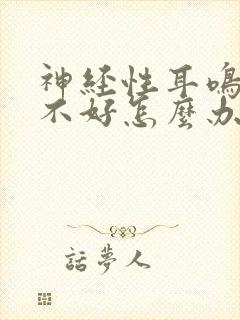 神経性耳鳴
不好怎麼办
話夢人